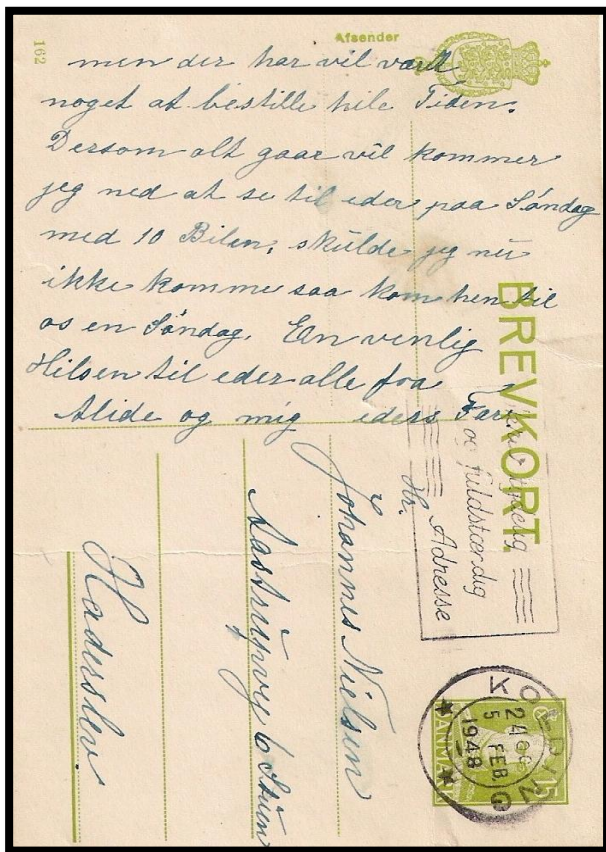 162
Afsender
men der har vel vært
noget at bestille hele Tiden.
Dersom alt gaar vel kommer
jeg ned at se til eder paa Søndag
med 10 Bilen, skulde jeg nu
ikke komme saa kom hen til
os en Søndag. En venlig
Hilsen til eder alle fra
Alide og mig eders Far
BREVKORT.
Skriv tydelig
og fuldstændig
Adresse
Hr.
Johannes Nielsen
6
Haderslev
KOLDING
5 FEB.
1948
DANMARK
15